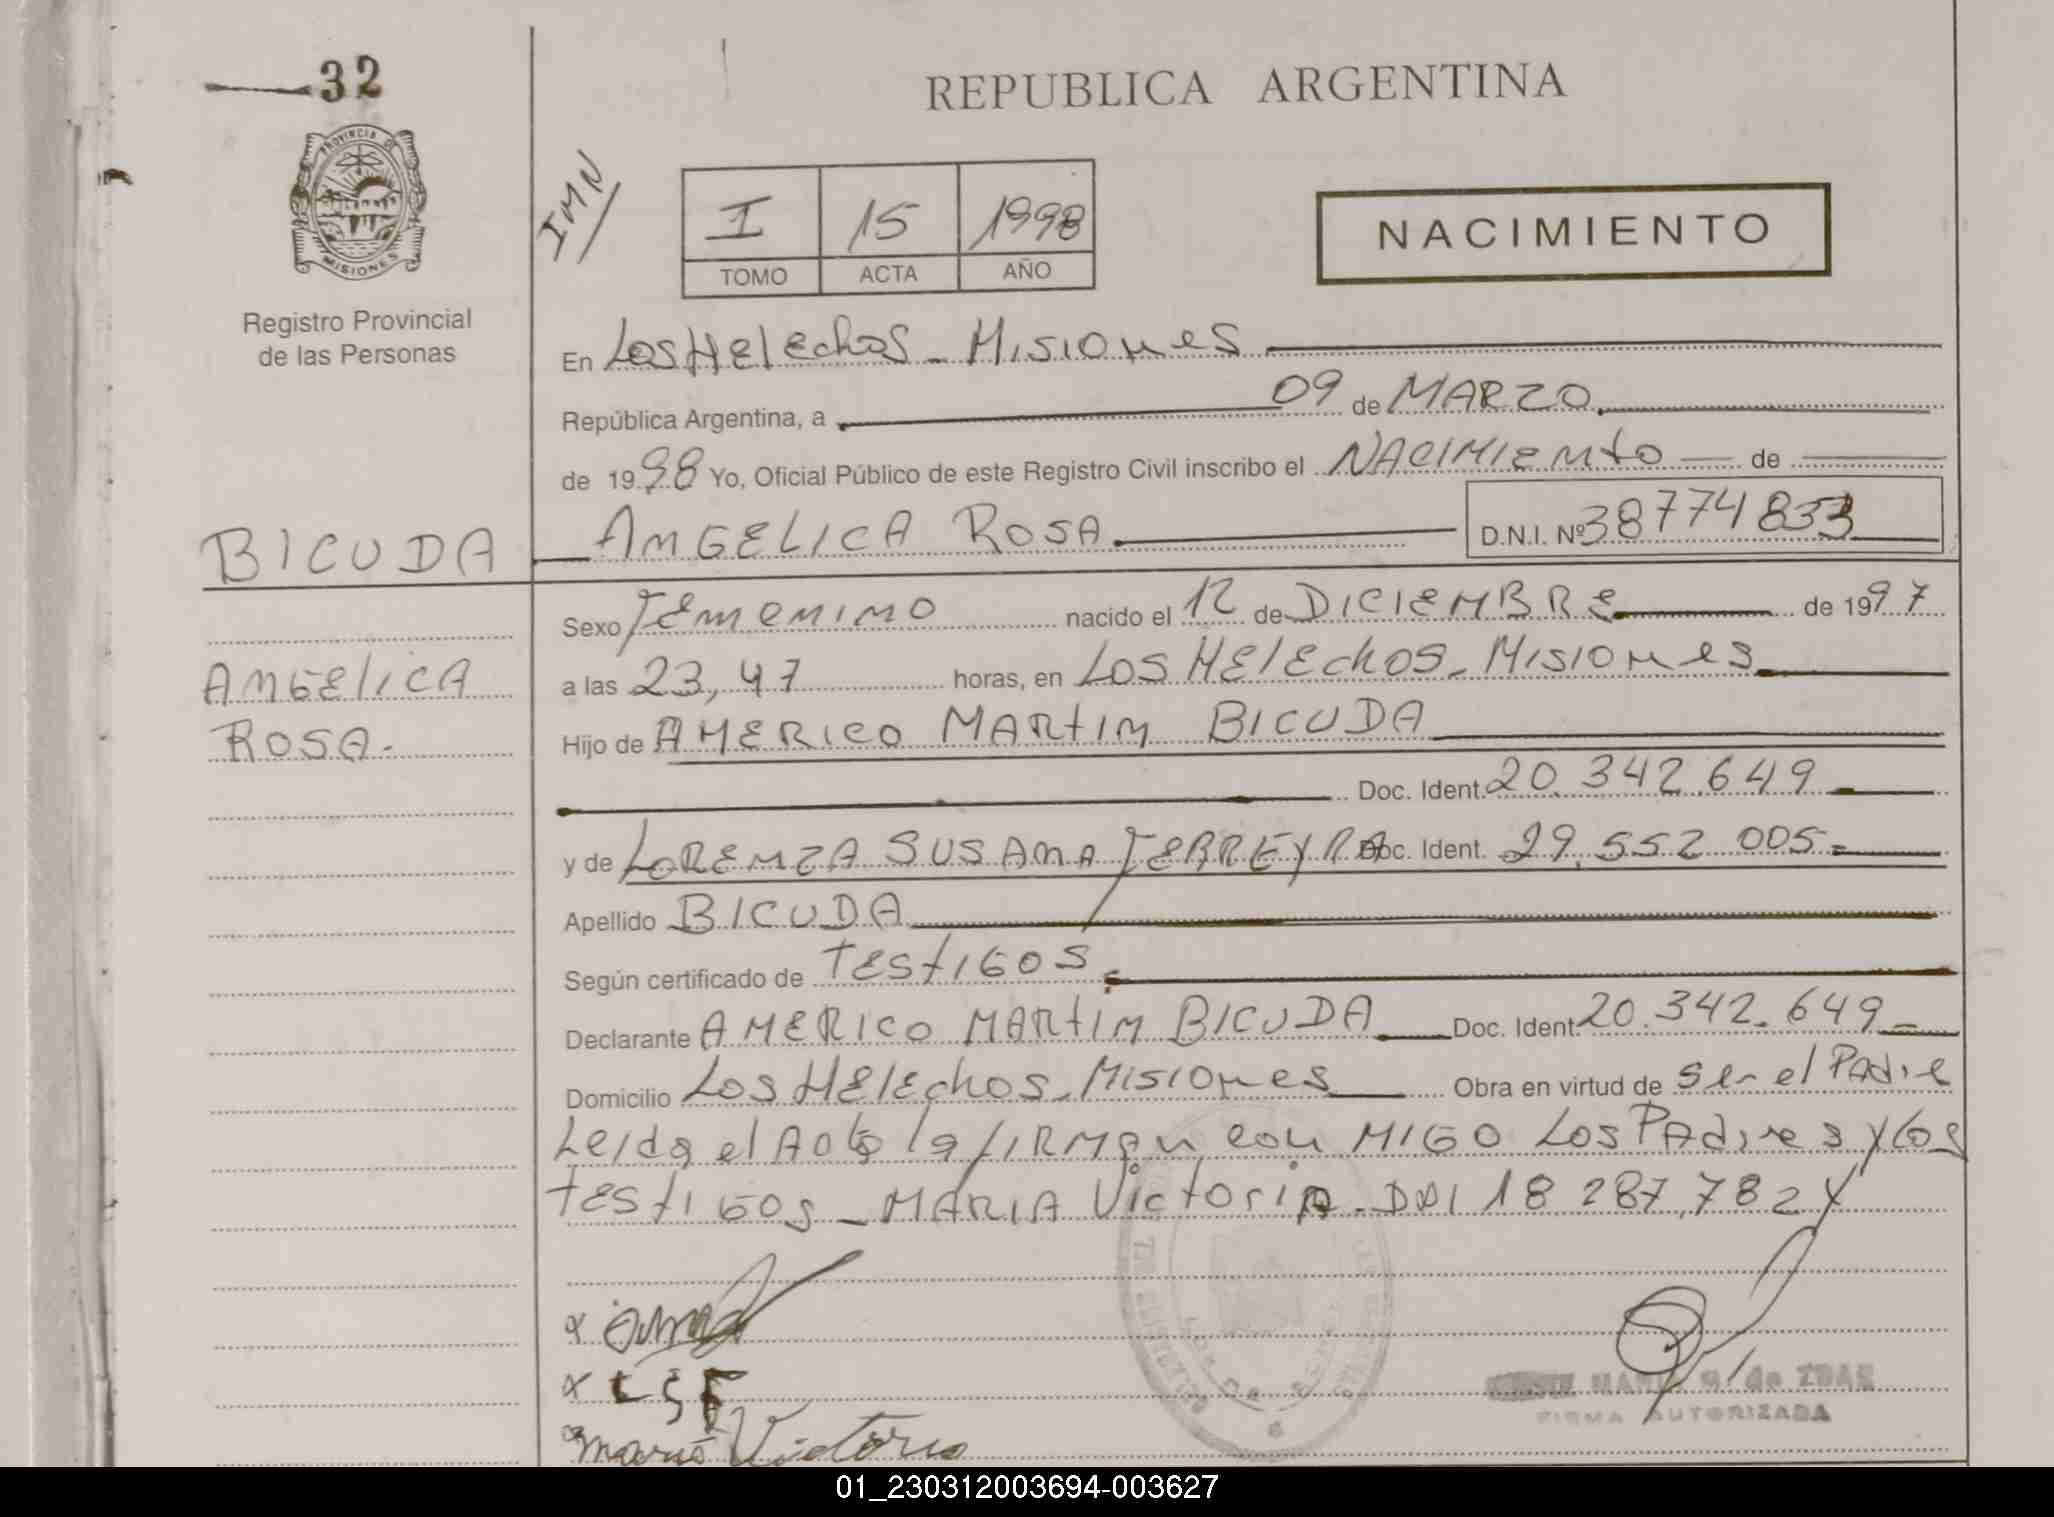 32
REPUBLICA ARGENTINA
PROVINCIA DE
MISIONES
Registro Provincial
de las Personas
IMN
I 15 1998
TOMO ACTA AÑO
NACIMIENTO
En Los Helechos - Misiones
República Argentina, a 09 de MARZO
de 1998 Yo, Oficial Público de este Registro Civil inscribo el NACIMIENTO de
BICUDA
ANGELICA ROSA D.N.I. Nº 38774833
Sexo FEMENINO nacido el 12 de DICIEMBRE de 1997
ANGELICA
a las 23,47 horas, en Los Helechos - Misiones
ROSA.-
Hijo de AMERICO MARTIN BICUDA
Doc. Ident. 20.342.649
y de LORENZA SUSANA FERREYRA Doc. Ident. 29.552.005=
Apellido BICUDA
Según certificado de TESTIGOS
Declarante AMERICO MARTIN BICUDA Doc. Ident. 20.342.649
Domicilio Los Helechos - Misiones Obra en virtud de ser el Padre
Leida el Acta la firman con MIGO Los Padres y los
testigos - MARIA Victoria - DNI 18 287.782 y
x
x LSF
Maria Victoria
de
FIRMA AUTORIZADA
01_230312003694-003627